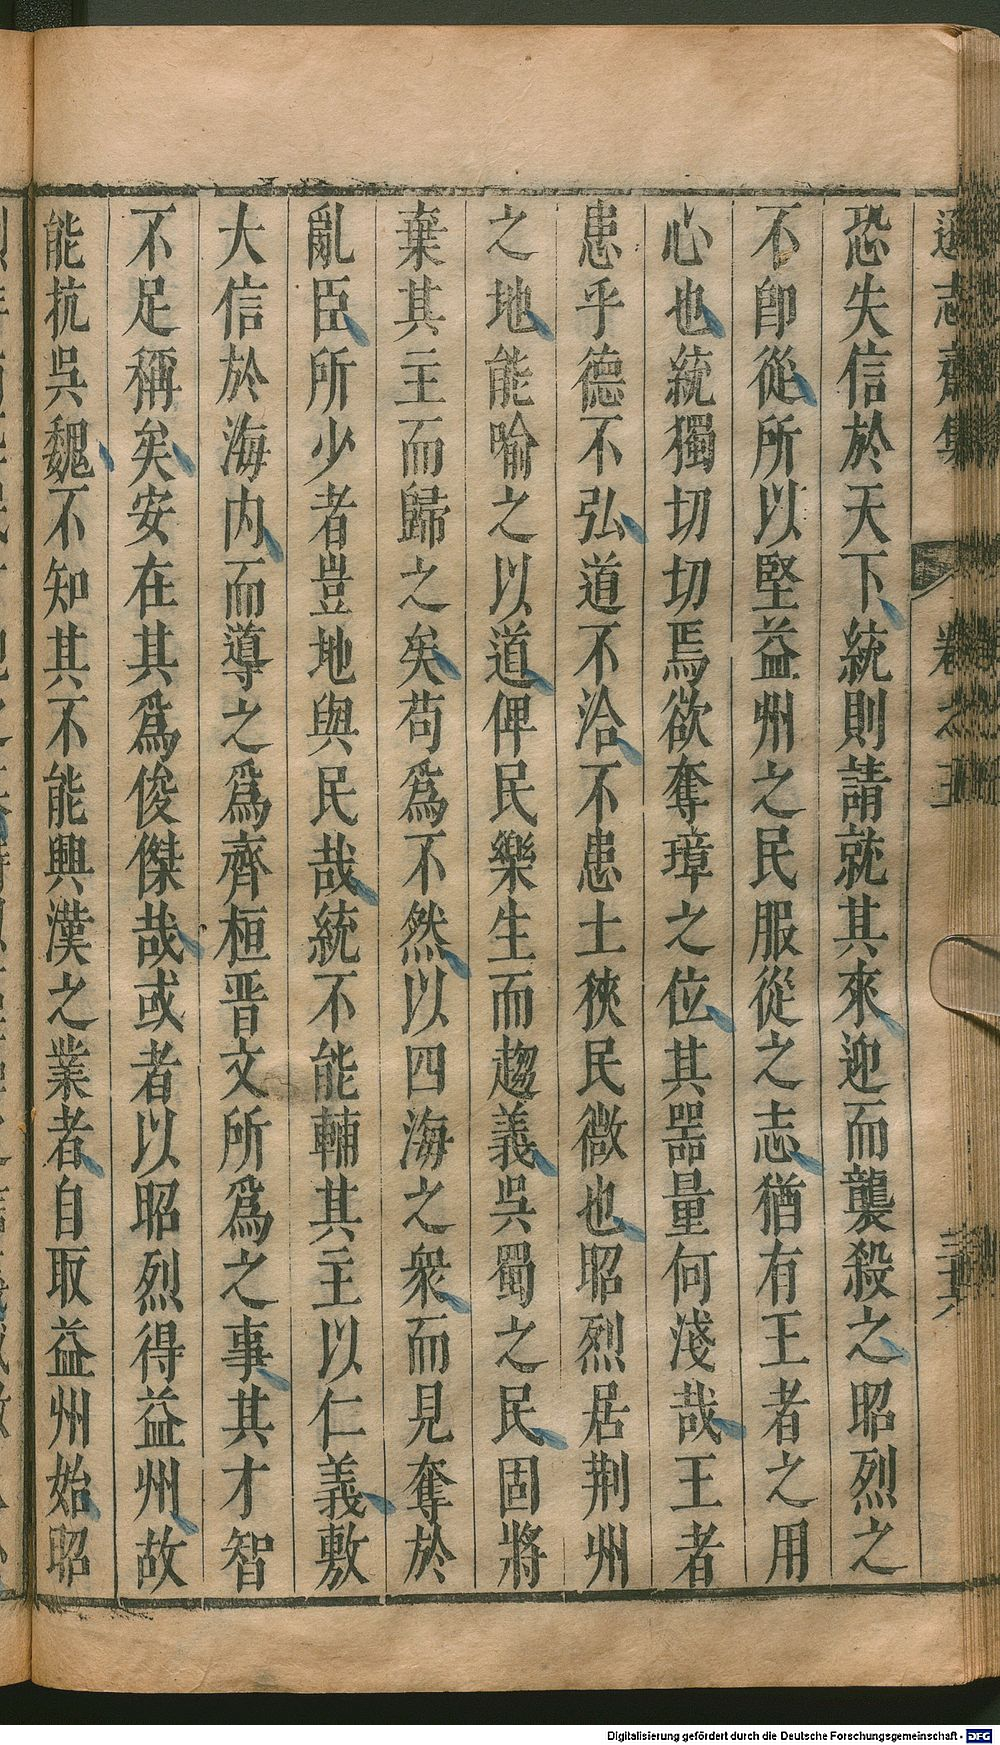 遜志齋集 卷之五 三十六
恐失信於天下統則請就其來迎而襲殺之昭烈之
不卽從所以堅益州之民服從之志猶有王者之用
心也統獨切切焉欲奪璋之位其噐量何淺哉王者
患乎德不弘道不洽不患土狹民微也昭烈居荆州
之地能喻之以道俾民樂生而趨義吳蜀之民固將
棄其主而歸之矣苟爲不然以四海之衆而見奪於
亂臣所少者豈地與民哉統不能輔其主以仁義敷
大信於海内而導之爲齊桓晋文所爲之事其才智
不足稱矣安在其爲俊傑哉或者以昭烈得益州故
能抗吳魏不知其不能興漢之業者自取益州始昭
Digitalisierung gefördert durch die Deutsche Forschungsgemeinschaft - DFG